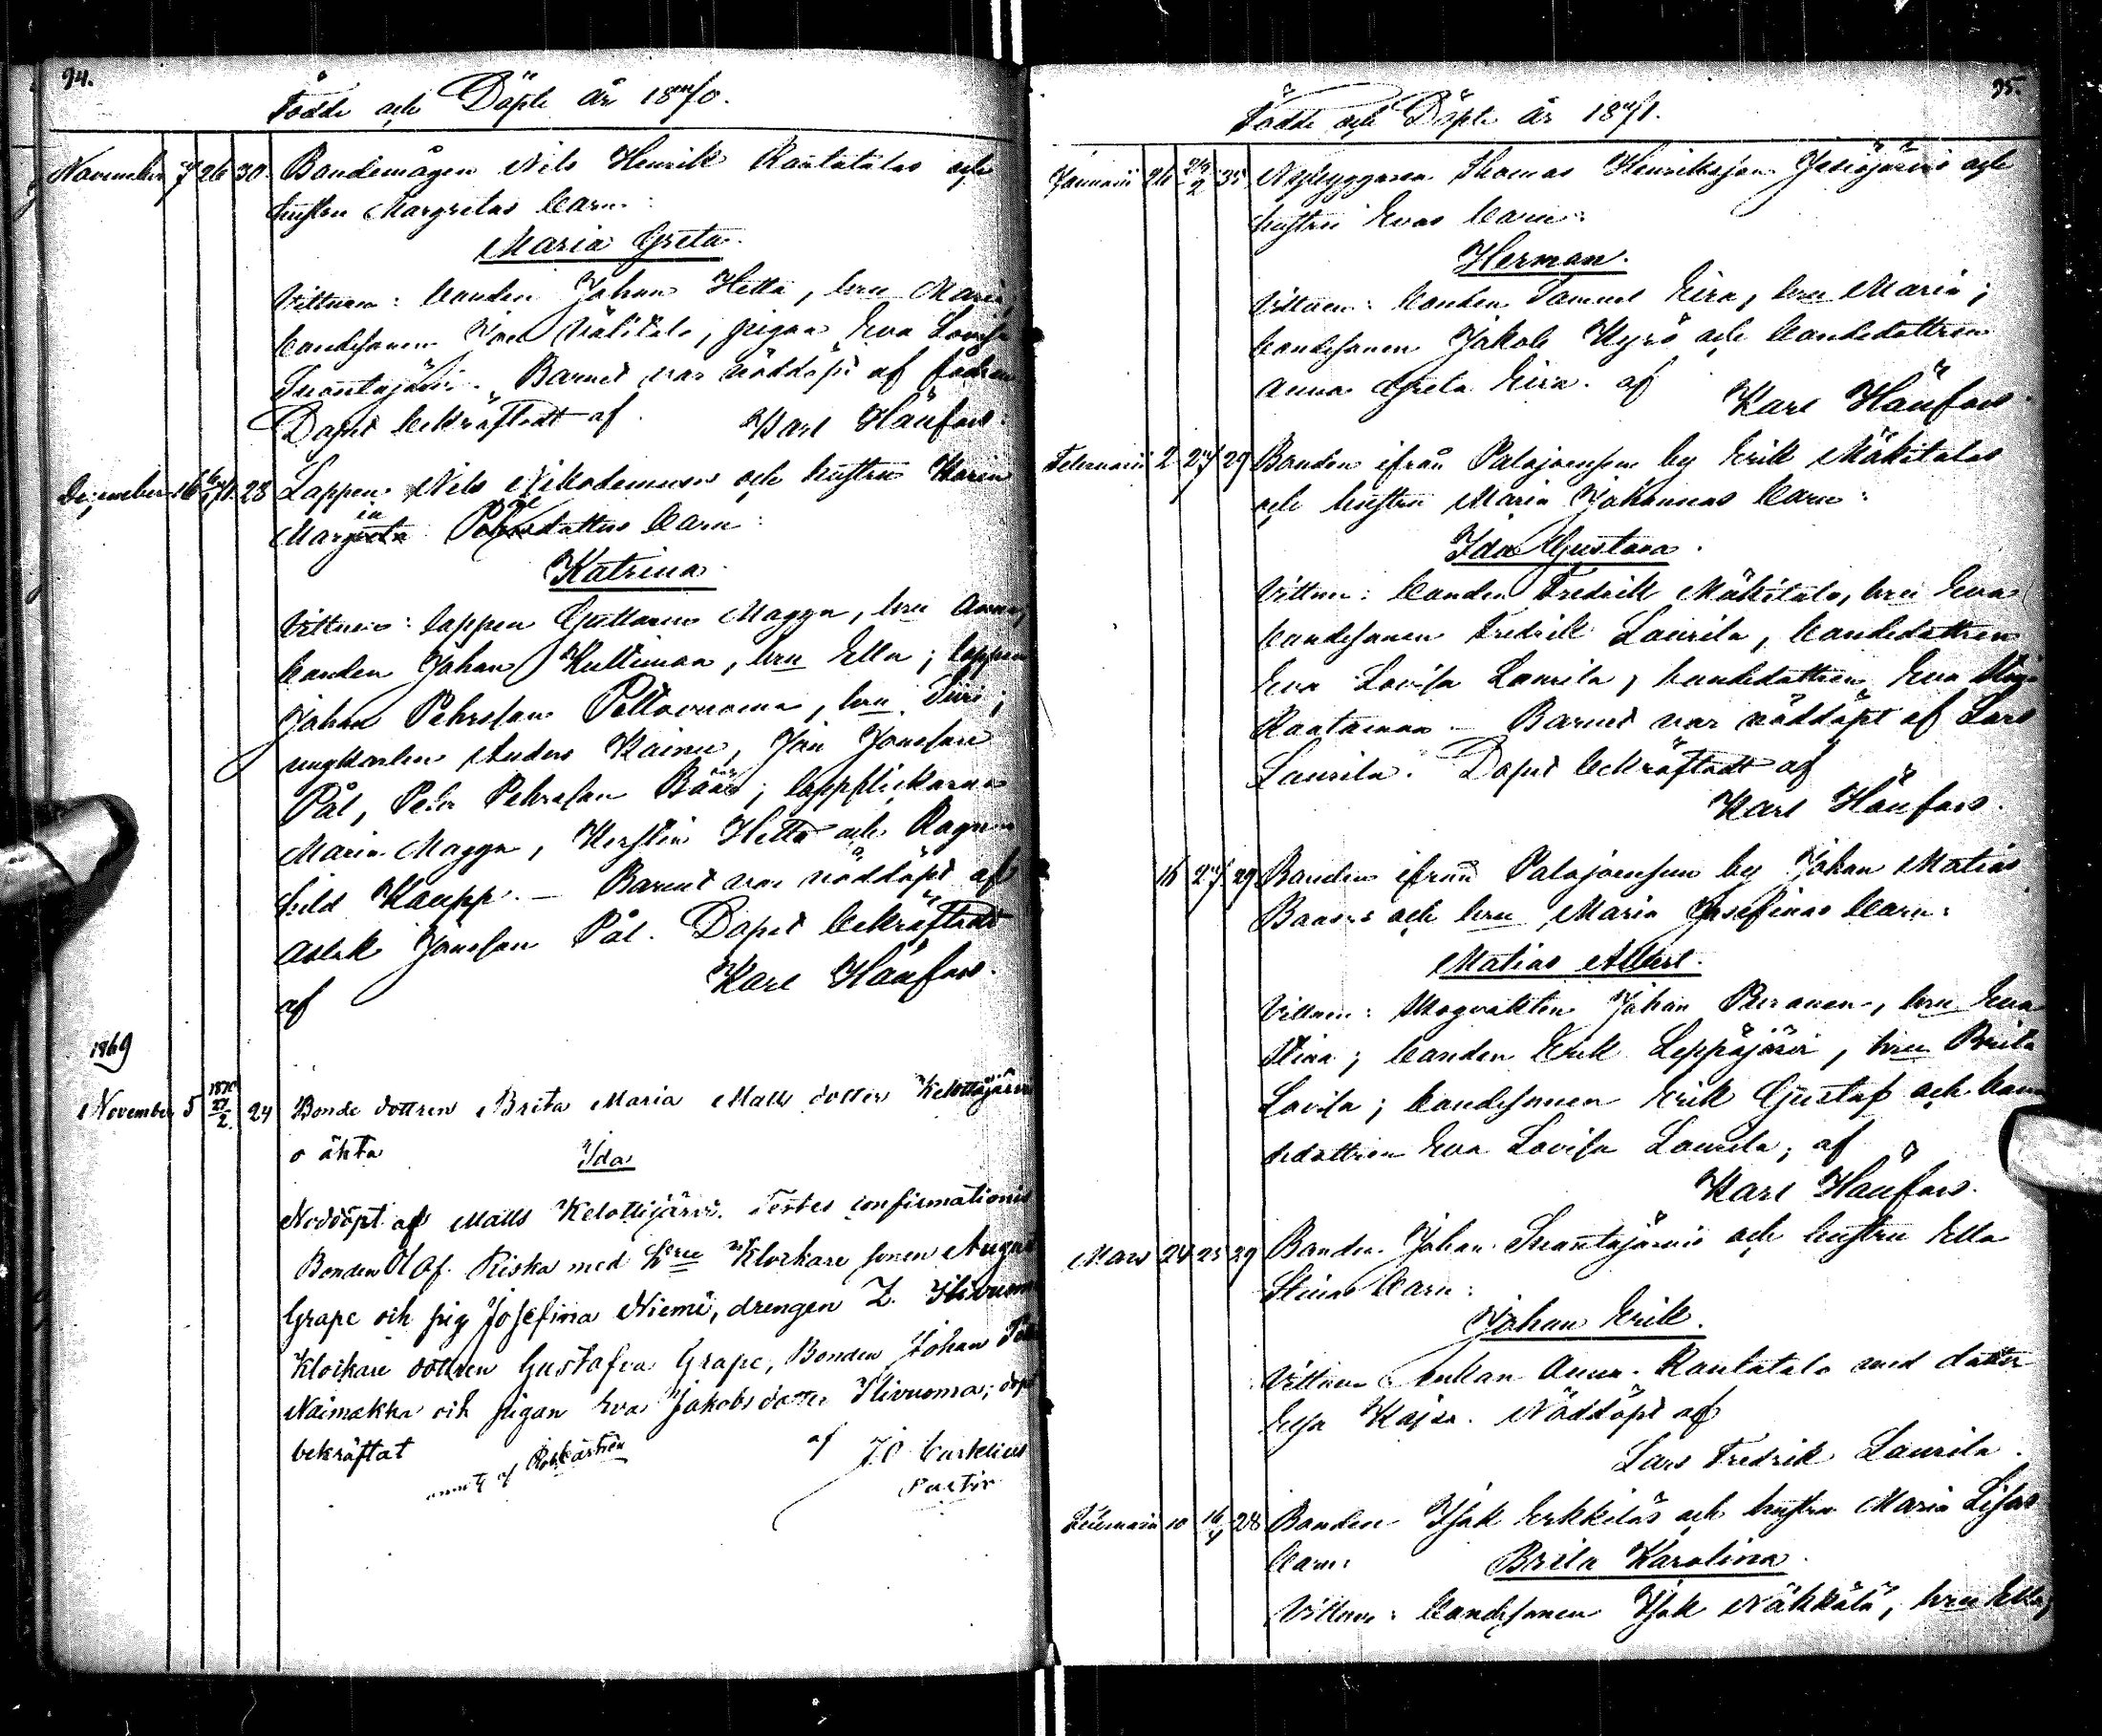 94.
Födde och Döpte år 1870.
November 7 26 30. Bondemågen Nils Henrik Rautatalos och
hustru Margretas barn:
Maria Greta.
Vittnen: bonden Johan Hetta, hru Maria;
bondesonen Välitalo, pigan Eva Lovisa
Suontajärvi. Barnet var nöddöpt af fadren
Dopet bekräftadt af Karl Hänfors.
December 16 28 Lappen Nils Nikodemusson och hustru Karin
Margreta dotters barn:
Katrina.
Vittnen: lappen Guttorm Magga, hru Anna,
bonden Johan Kultima, hru Ella; lappen
Johan Pehrsson Peltovuoma, hru Siri;
ungkarlen Anders Kainu, Jon Jonsson
Pål, Pehr Pehrsson Bäär; lappflickorna
Maria Magga, Kerstin Hetta och Ragn-
hild Kaupp. — Barnet var nöddöpt af
Aslak Jonsson Pål. Dopet bekräftadt
af Karl Hänfors.
1869
November 5 1870 27/2. 24 Bonde dottren Brita Maria Matts dotter Kelottijärvi
o ähta Ida
Nöddöpt af Matts Kelottijärvi. Testes confirmationis
Bonden Olof Riska med hru Klockare sonen August
Grape och pig Josefina Niemi, drengen Z. Stivuoma
Klockare dottren Gustafva Grape, Bonden Johan
Naimakka och pigan Eva Jakobs dotter Stivuoma; dopt
bekräftat af J O Carlelius
Pastor
95.
Födde och Döpte år 1871.
Januarii 26 24/2 35 Nybyggaren Thomas Henriksson Jesiöjärvis och
hustru Evas barn:
Herman.
Vittnen: bonden Samuel Eira, hru Maria;
bondesonen Jakob Kyrö och bondedottren
Anna Greta Eira. af Karl Hänfors.
Februarii 2 27 29 Bonden ifrån Palojoensun by Erik Mäkitalos
och hustru Maria Johannas barn:
Ida Gustava.
Vittnen: bonden Fredrik Mäkitalo, hru Eva
bondesonen Fredrik Laurila, bondedottren
Eva Lovisa Laurila, bondedottren Eva Stina
Rautamaa — Barnet var nöddöpt af Lars
Laurila. Dopet bekräftadt af
Karl Hänfors.
16 27 29 Bonden ifrån Palojoensun by Johan Matias
Baasis och hru Maria Josefinas barn:
Matias Albert.
Vittnen: Skogvakten Johan Peranen, hru Eva
Stina; bonden Erik Leppäjärvi, hru Brita
Lovisa; bondesonen Erik Gustaf och bon-
dedottren Eva Lovisa Laurila; af
Karl Hänfors.
Mars 24 25 29 Bonden Johan Suontajärvis och hustru Ella
Stinas barn:
Johan Erik.
Vittnen Enkan Anna Rautatalo med dotter
Elsa Kajsa. Nöddöpt af
Lars Fredrik Laurila.
Februarii 10 28 Bonden Isak Erkkiläs och hustru Maria Lisas
barn: Brita Karolina.
Vittnen: bondesonen Isak Näkkälä, hru Ella,